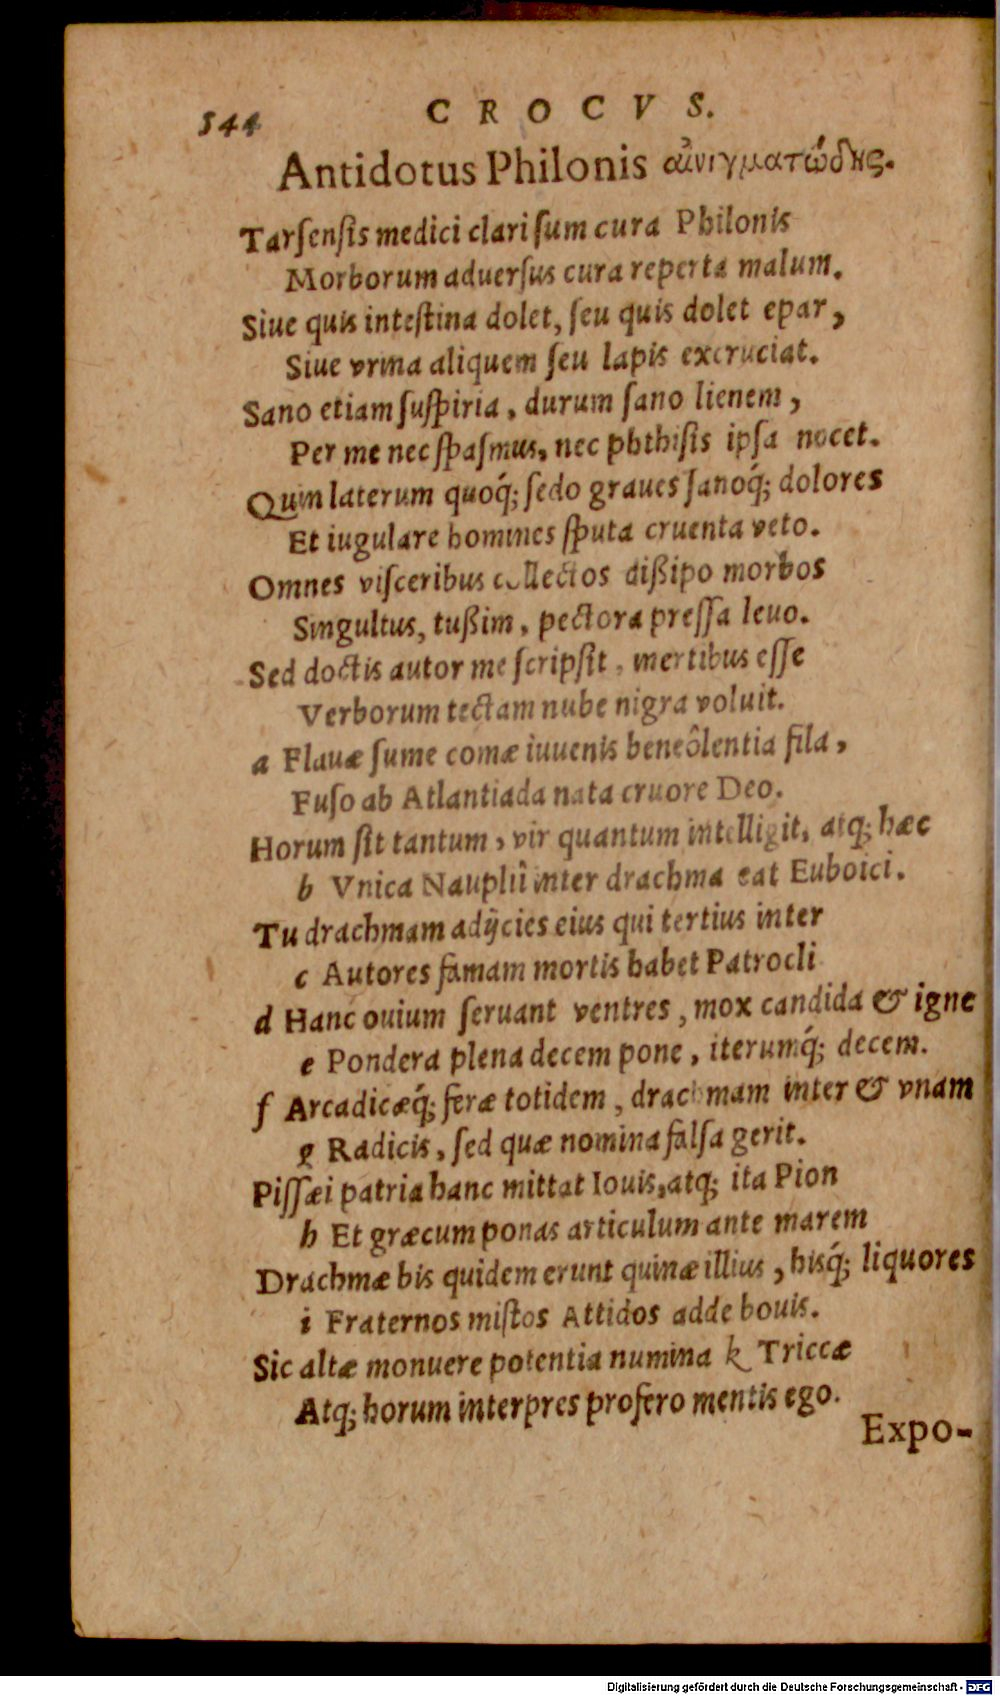 544 CROCVS.
Antidotus Philonis αἰνιγματώδης.
Tarſenſis medici clari ſum cura Philonis
Morborum aduerſus cura reperta malum.
Siue quis inteſtina dolet, ſeu quis dolet epar,
Siue vrina aliquem ſeu lapis excruciat.
Sano etiam ſuſpiria, durum ſano lienem,
Per me nec ſpaſmus, nec phthiſis ipſa nocet.
Quin laterum quoq́; ſedo graues ſanoq́; dolores
Et iugulare homines ſputa cruenta veto.
Omnes viſceribus collectos dißipo morbos
Singultus, tußim, pectora preſſa leuo.
Sed doctis autor me ſcripſit, inertibus eſſe
Verborum tectam nube nigra voluit.
a Flauæ ſume comæ iuuenis beneôlentia fila,
Fuſo ab Atlantiada nata cruore Deo.
Horum ſit tantum, vir quantum intelligit, atq; hæc
b Vnica Nauplii inter drachma eat Euboici.
Tu drachmam adijcies eius qui tertius inter
c Autores famam mortis habet Patrocli
d Hanc ouium ſeruant ventres, mox candida & igne
e Pondera plena decem pone, iterumq́; decem.
f Arcadicæq́; feræ totidem, drachmam inter & vnam
g Radicis, ſed quæ nomina falſa gerit.
Piſſæi patria hanc mittat Iouis, atq; ita Pion
h Et græcum ponas articulum ante marem
Drachmæ bis quidem erunt quinæ illius, bisq́; liquores
i Fraternos miſtos Attidos adde bouis.
Sic altæ monuere potentia numina k Triccæ
Atq; horum interpres profero mentis ego.
Expo-
Digitalisierung gefördert durch die Deutsche Forschungsgemeinschaft - DFG